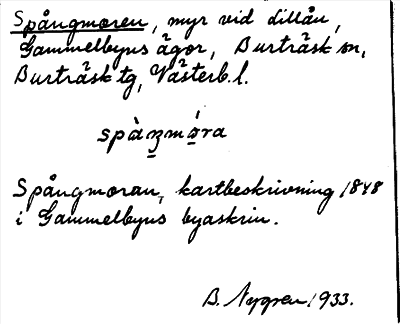 Spångmoren, myr vid dillån,
Gammelbyns ägor, Burträsk sn,
Burträsk tg, Västerb. l.
Spångmoran, kartbeskrivning 1848
i Gammelbyns byaskrin.
B. Nygren 1933.